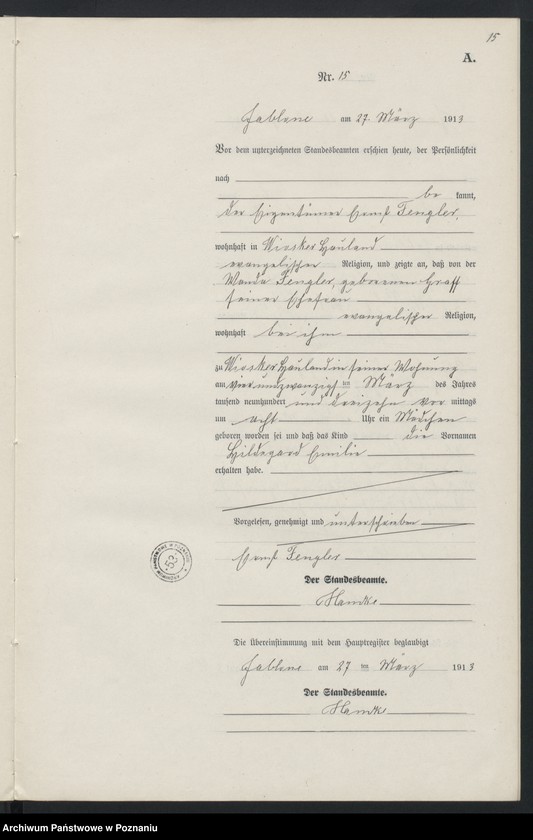 15
A.
Nr. 15
Jablone am 27. März 1913
Vor dem unterzeichneten Standesbeamten erschien heute, der Persönlichkeit
nach
be kannt,
der Eigentümer Ernst Fengler,
wohnhaft in Wiosker Hauland
evangelischer Religion, und zeigte an, daß von der
Wanda Fengler, geborenen Graff
seiner Ehefrau
evangelischer Religion,
wohnhaft bei ihm
zu Wiosker Hauland in seiner Wohnung
am vierundzwanzigsten März des Jahres
tausend neunhundert und dreizehn vor mittags
um acht Uhr ein Mädchen
geboren worden sei und daß das Kind die Vornamen
Hildegard Emilie
erhalten habe.
Vorgelesen, genehmigt und unterschrieben
Ernst Fengler
Der Standesbeamte.
Die Übereinstimmung mit dem Hauptregister beglaubigt
Jablone am 27 ten März 1913
Der Standesbeamte.
53
Archiwum Państwowe w Poznaniu